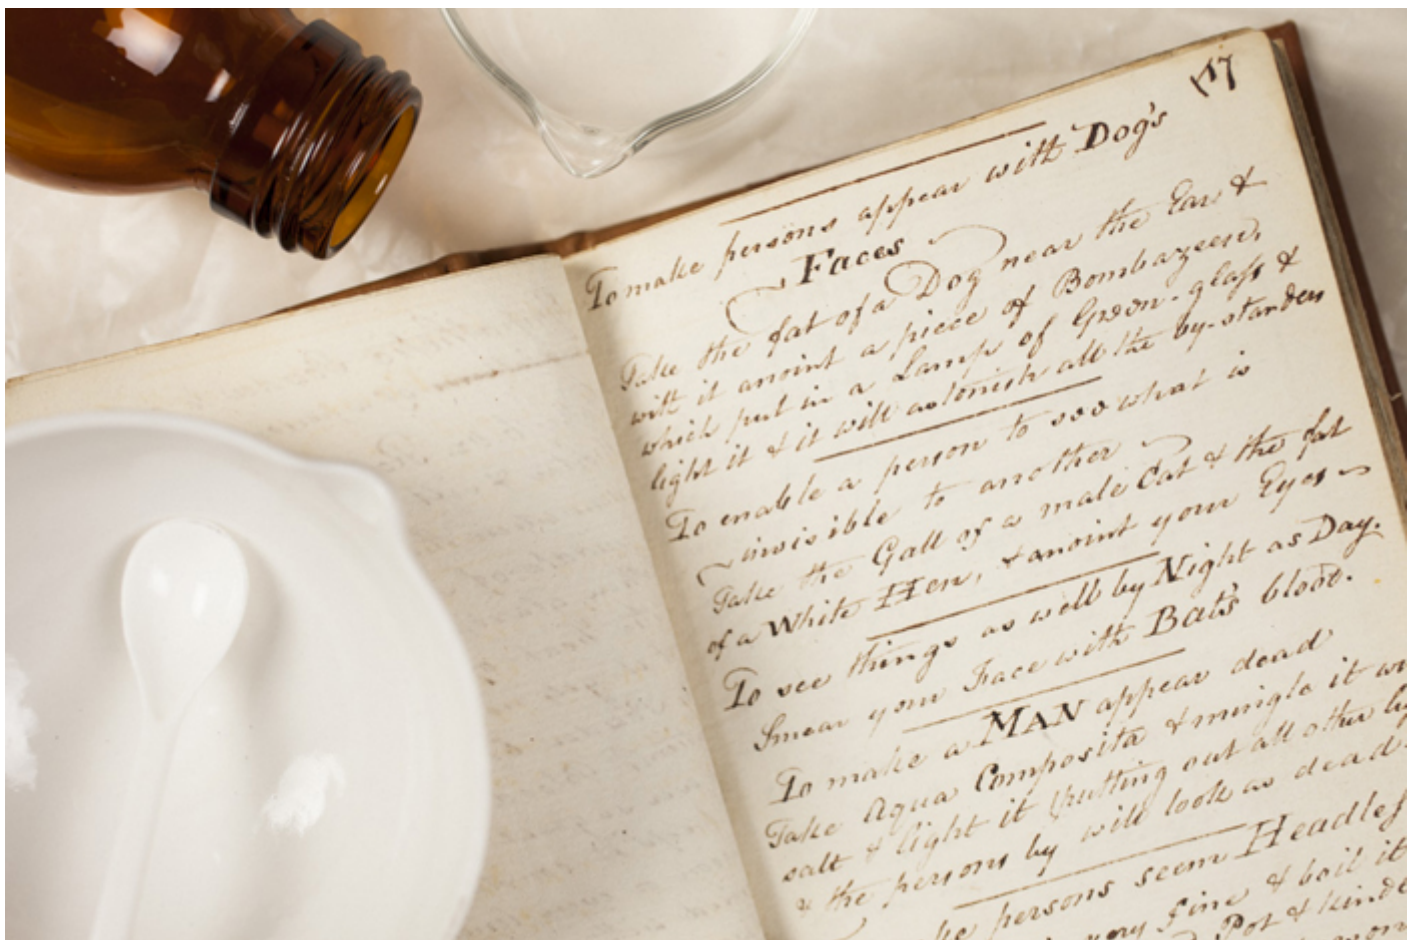 17
To make persons appear with Dog's
Faces
Take the fat of a Dog near the Ears &
with it anoint a piece of Bombazeen,
which put in a Lamp of Green-glass &
light it & it will astonish all the by-standers
To enable a person to see what is
invisible to another
Take the Gall of a male Cat & the fat
of a White Hen, & anoint your Eyes
To see things as well by Night as Day.
Smear your Face with Bat's blood.
To make a MAN appear dead
Take Aqua Composita & mingle it
salt & light it (putting out all other
& the persons by will look as dead.
persons seem Headless
very fine & boil it
Pot &